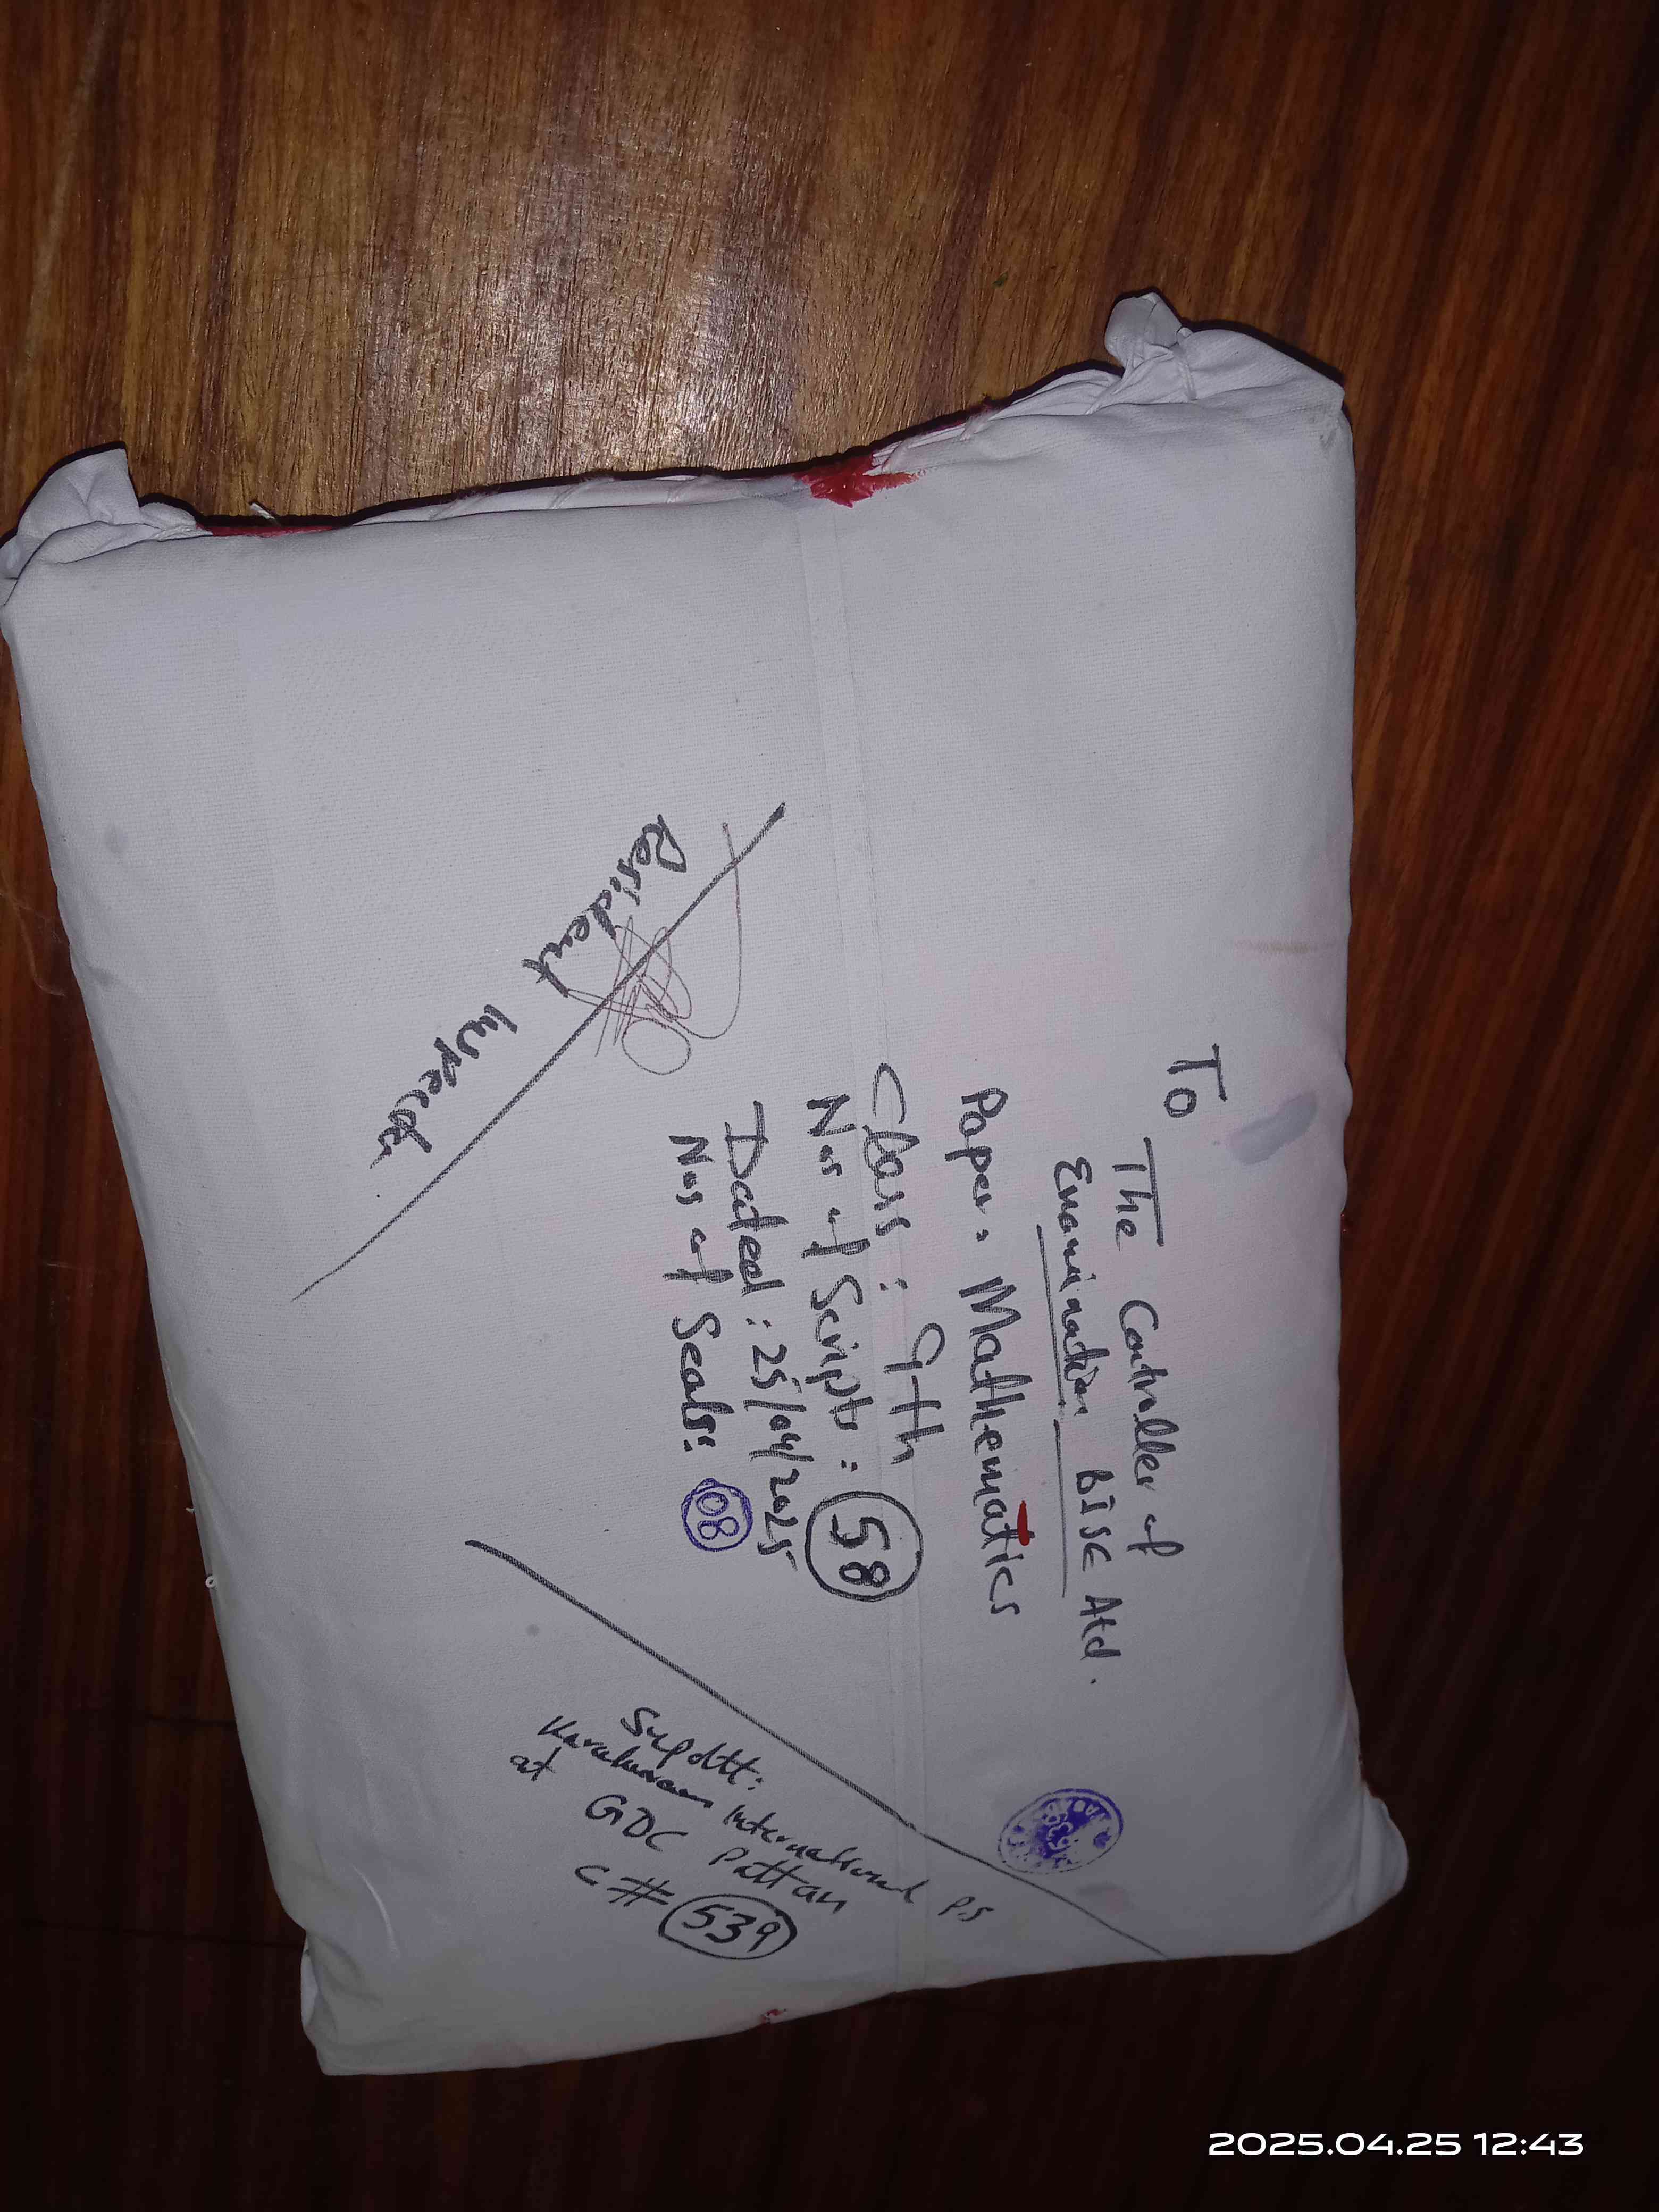 To
The Controller of
Examination BISE Atd.
Paper: Mathematics
Class: 9th
Nos of Scripts: 58
Dated: 25/04/2025
Nos of Seals: 08
Resident Inspector
Supdtt:
Karakuram International P.S
at GDC Pattan
C# 539
2025.04.25 12:43